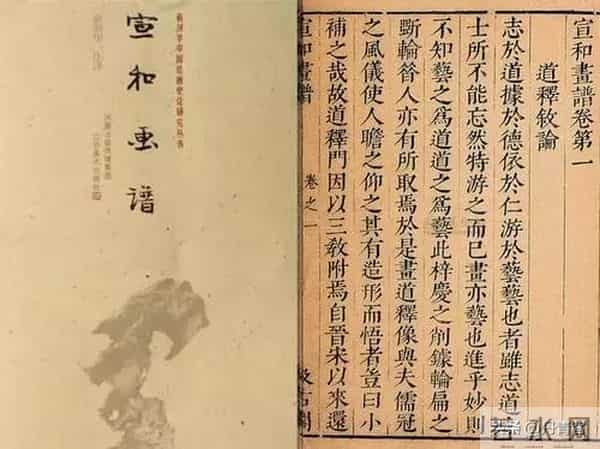 宣和画谱
宣和畫譜卷第一
道釋敘論
志於道據於德依於仁游於藝藝也者雖志道
士所不能忘然特游之而已畫亦藝也進乎妙則
不知藝之爲道道之爲藝此梓慶之削鐻輪扁之
斲輪昝人亦有所取焉於是畫道釋像與夫儒冠
之風儀使人瞻之仰之其有造形而悟者豈曰小
補之哉故道釋門因以三教附焉自晉宋以來還
宣和畫譜 卷之一 汲古閣
若水网